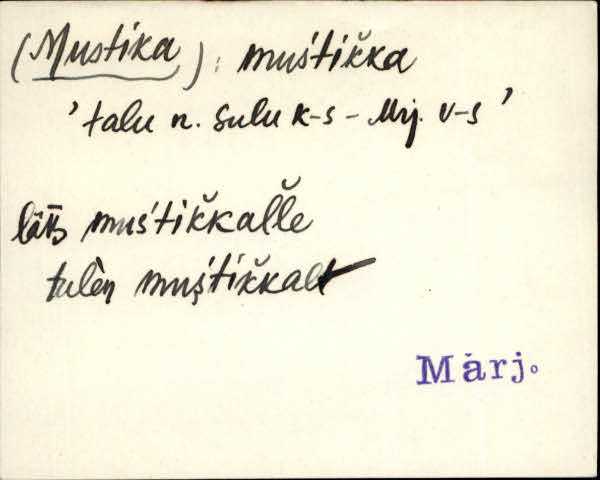 (Mustika): muśtiǩka
'talu n. Sulu k-s - Mrj. v-s'
lätt muśtiǩkalle
tulèn muśtiǩkalt
Marj.